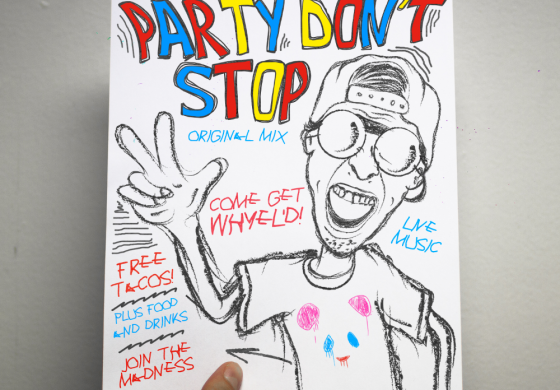 PARTY DON'T
STOP
ORIGINAL MIX
COME GET
WHYEL'D!
LIVE
MUSIC
FREE
TACOS!
PLUS FOOD
AND DRINKS
JOIN THE
MADNESS